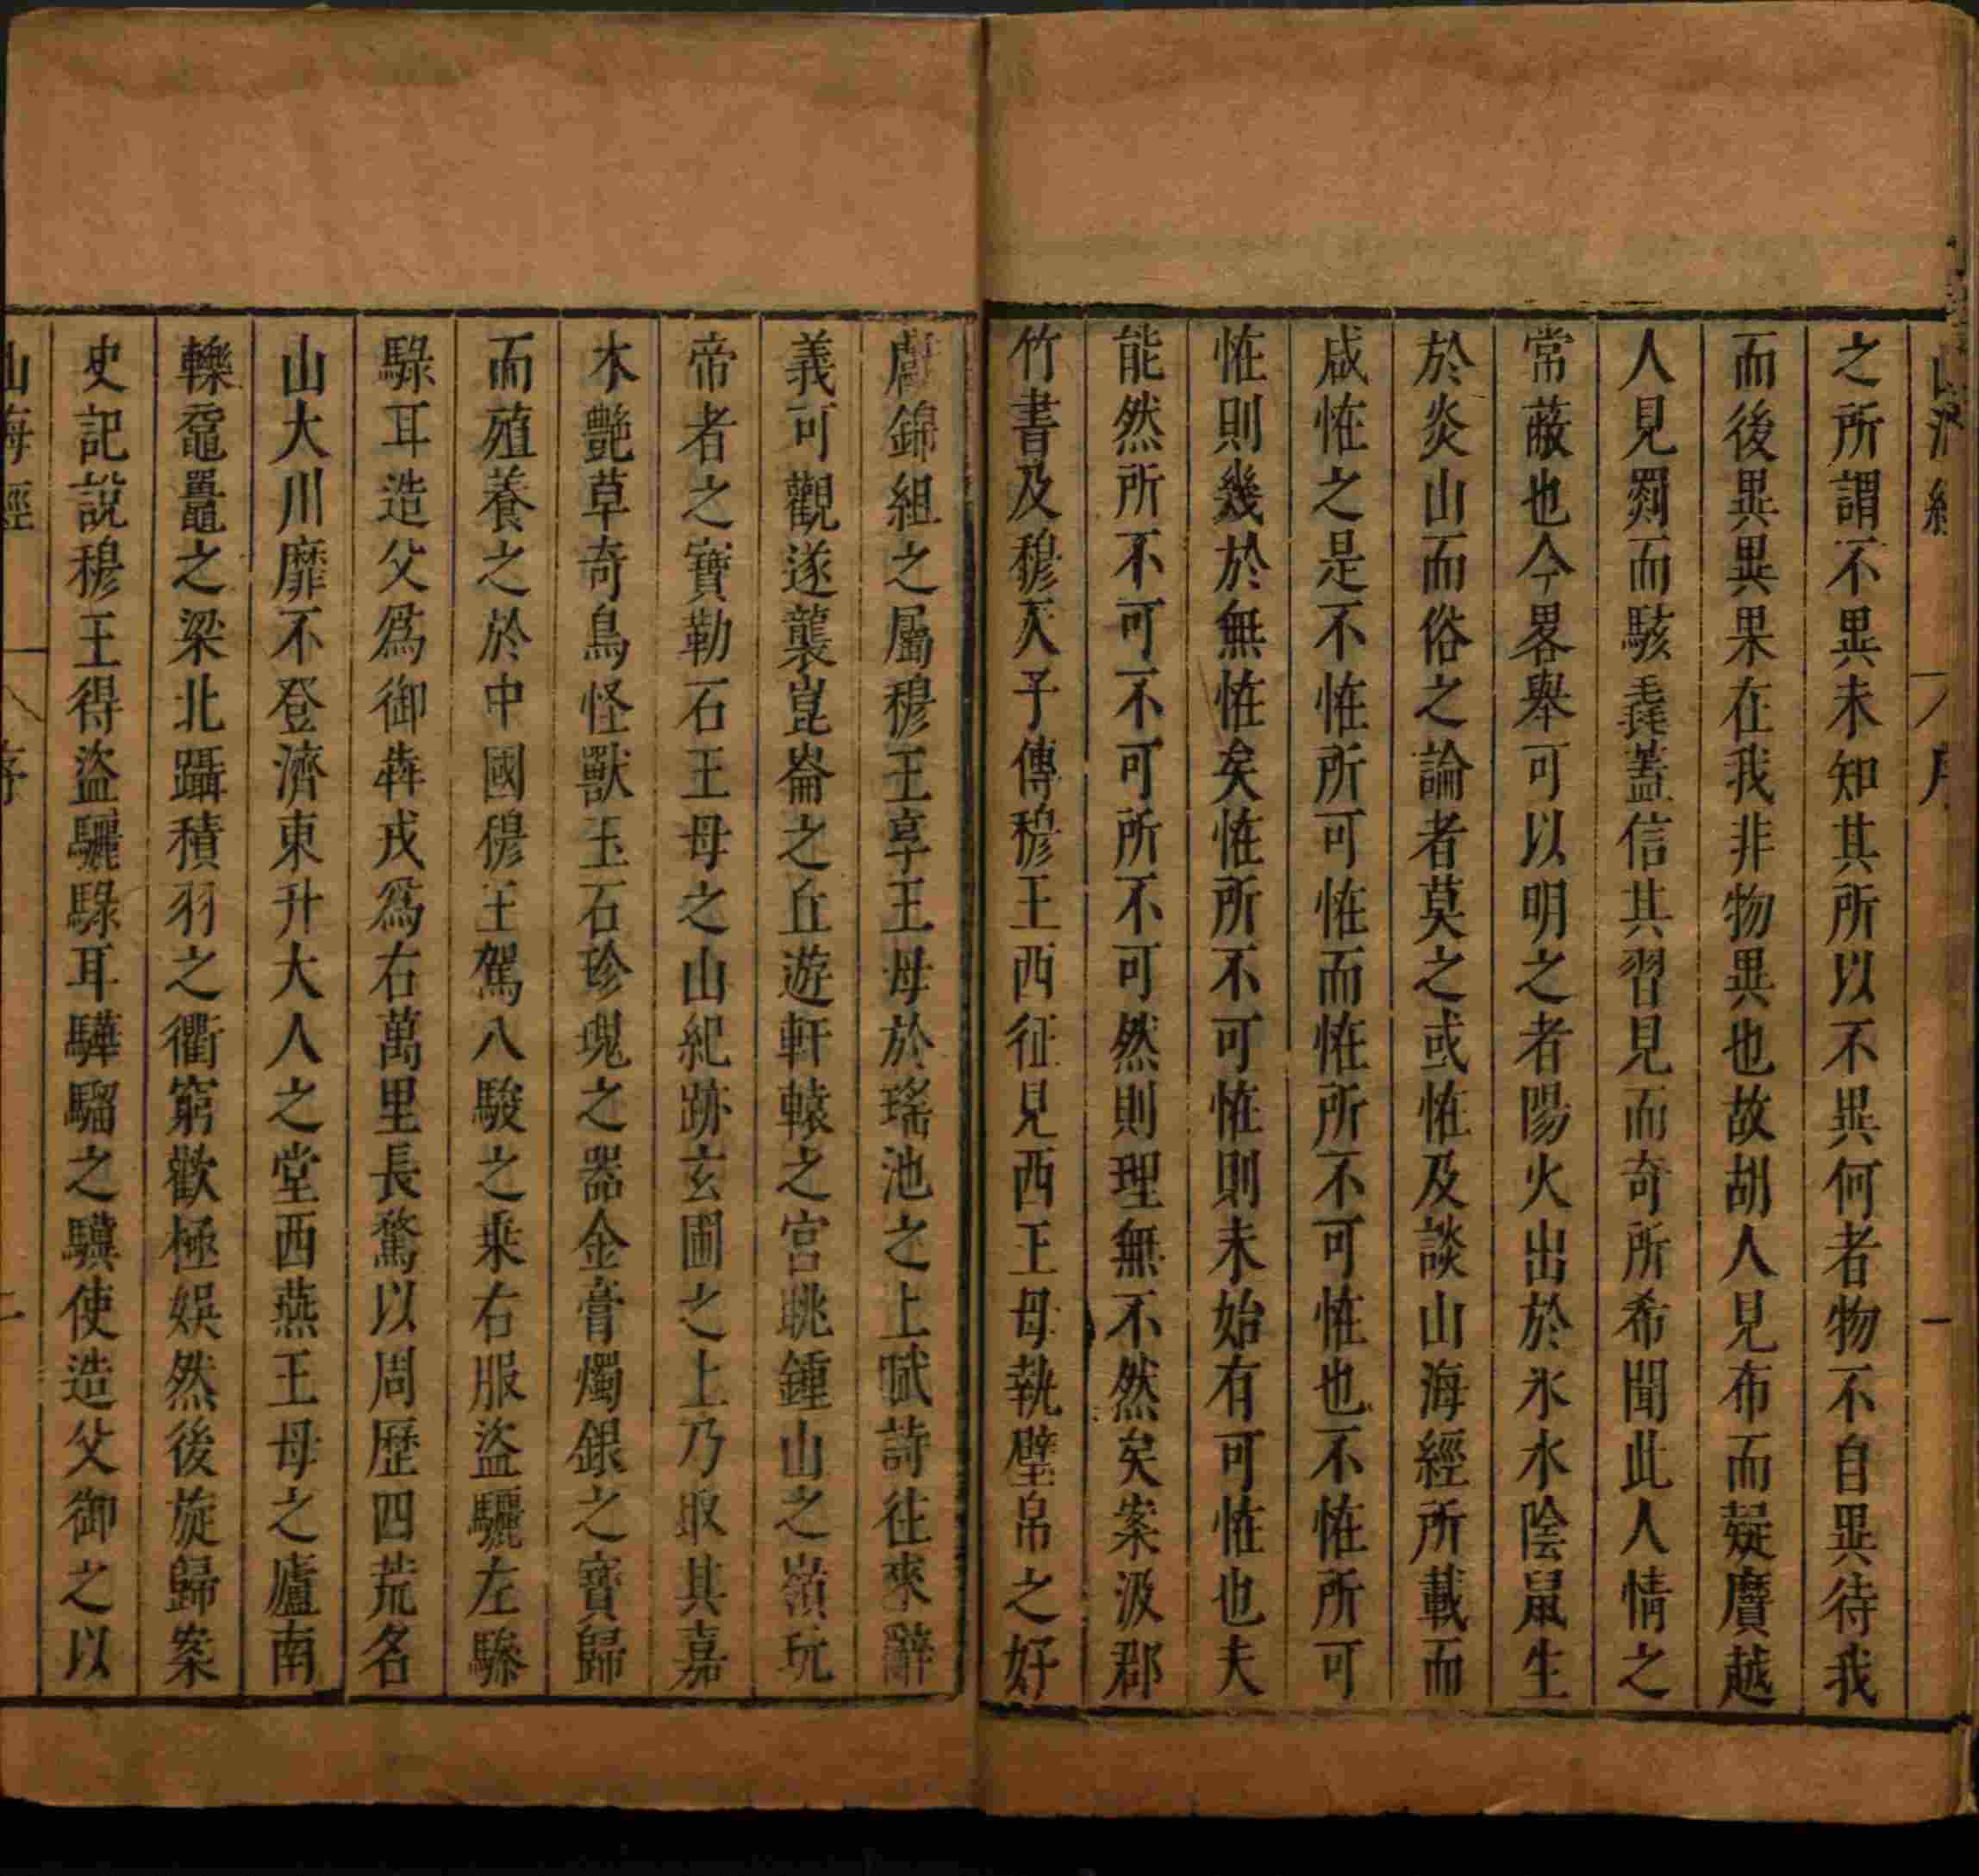 山海經 序 一
之所謂不異未知其所以不異何者物不自異待我
而後異異果在我非物異也故胡人見布而疑黂越
人見罽而駭毳蓋信其習見而奇所希聞此人情之
常蔽也今畧舉可以明之者陽火出於氷水陰鼠生
於炎山而俗之論者莫之或恠及談山海經所載而
咸恠之是不恠所可恠而恠所不可恠也不恠所可
恠則幾於無恠矣恠所不可恠則未始有可恠也夫
能然所不可不可所不可然則理無不然矣案汲郡
竹書及穆天子傳穆王西征見西王母執璧帛之好
獻錦組之屬穆王享王母於瑤池之上賦詩往來辭
義可觀遂襲崑崙之丘遊軒轅之宮眺鍾山之嶺玩
帝者之寶勒石王母之山紀跡玄圃之上乃取其嘉
木艷草奇鳥怪獸玉石珍瑰之器金膏燭銀之寶歸
而殖養之於中國穆王駕八駿之乗右服盜驪左驂
騄耳造父爲御犇戎爲右萬里長騖以周歷四荒名
山大川靡不登濟東升大人之堂西燕王母之廬南
轢黿鼉之梁北躡積羽之衢窮歡極娛然後旋歸案
史記說穆王得盜驪騄耳驊騮之驥使造父御之以
山海經 序 二